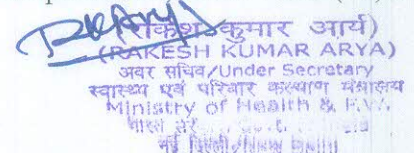 राकेश कुमार आर्य)
(RAKESH KUMAR ARYA)
अवर सचिव/Under Secretary
स्वास्थ्य एवं परिवार कल्याण मंत्रालय
Ministry of Health & F.W.
भारत
नई दिल्ली/New Delhi